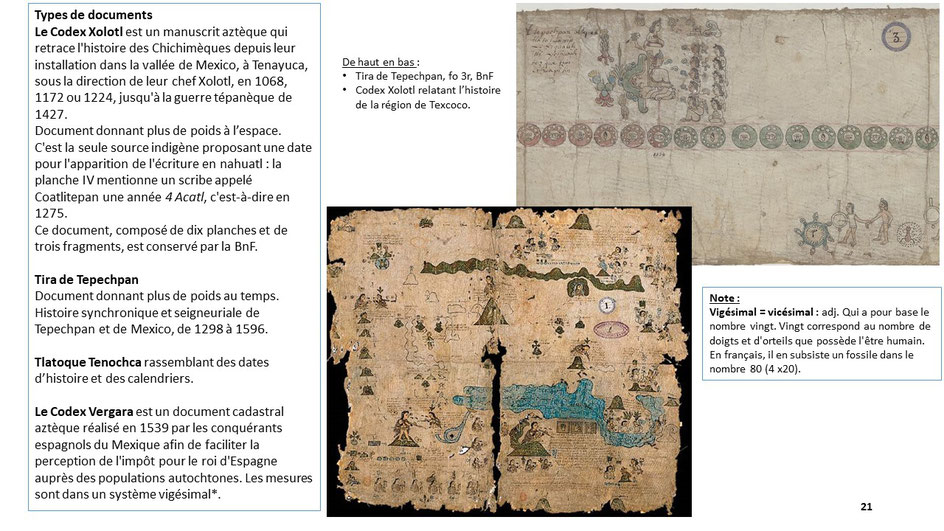 Types de documents
Le Codex Xolotl est un manuscrit aztèque qui
retrace l'histoire des Chichimèques depuis leur
installation dans la vallée de Mexico, à Tenayuca,
sous la direction de leur chef Xolotl, en 1068,
1172 ou 1224, jusqu'à la guerre tépanèque de
1427.
Document donnant plus de poids à l'espace.
C'est la seule source indigène proposant une date
pour l'apparition de l'écriture en nahuatl : la
planche IV mentionne un scribe appelé
Coatlitepan une année 4 Acatl, c'est-à-dire en
1275.
Ce document, composé de dix planches et de
trois fragments, est conservé par la BnF.
Tira de Tepechpan
Document donnant plus de poids au temps.
Histoire synchronique et seigneuriale de
Tepechpan et de Mexico, de 1298 à 1596.
Tlatoque Tenochca rassemblant des dates
d'histoire et des calendriers.
Le Codex Vergara est un document cadastral
aztèque réalisé en 1539 par les conquérants
espagnols du Mexique afin de faciliter la
perception de l'impôt pour le roi d'Espagne
auprès des populations autochtones. Les mesures
sont dans un système vigésimal*.
De haut en bas :
• Tira de Tepechpan, fo 3r, BnF
• Codex Xolotl relatant l'histoire
de la région de Texcoco.
3
1
Note :
Vigésimal = vicésimal : adj. Qui a pour base le
nombre vingt. Vingt correspond au nombre de
doigts et d'orteils que possède l'être humain.
En français, il en subsiste un fossile dans le
nombre 80 (4 x20).
21